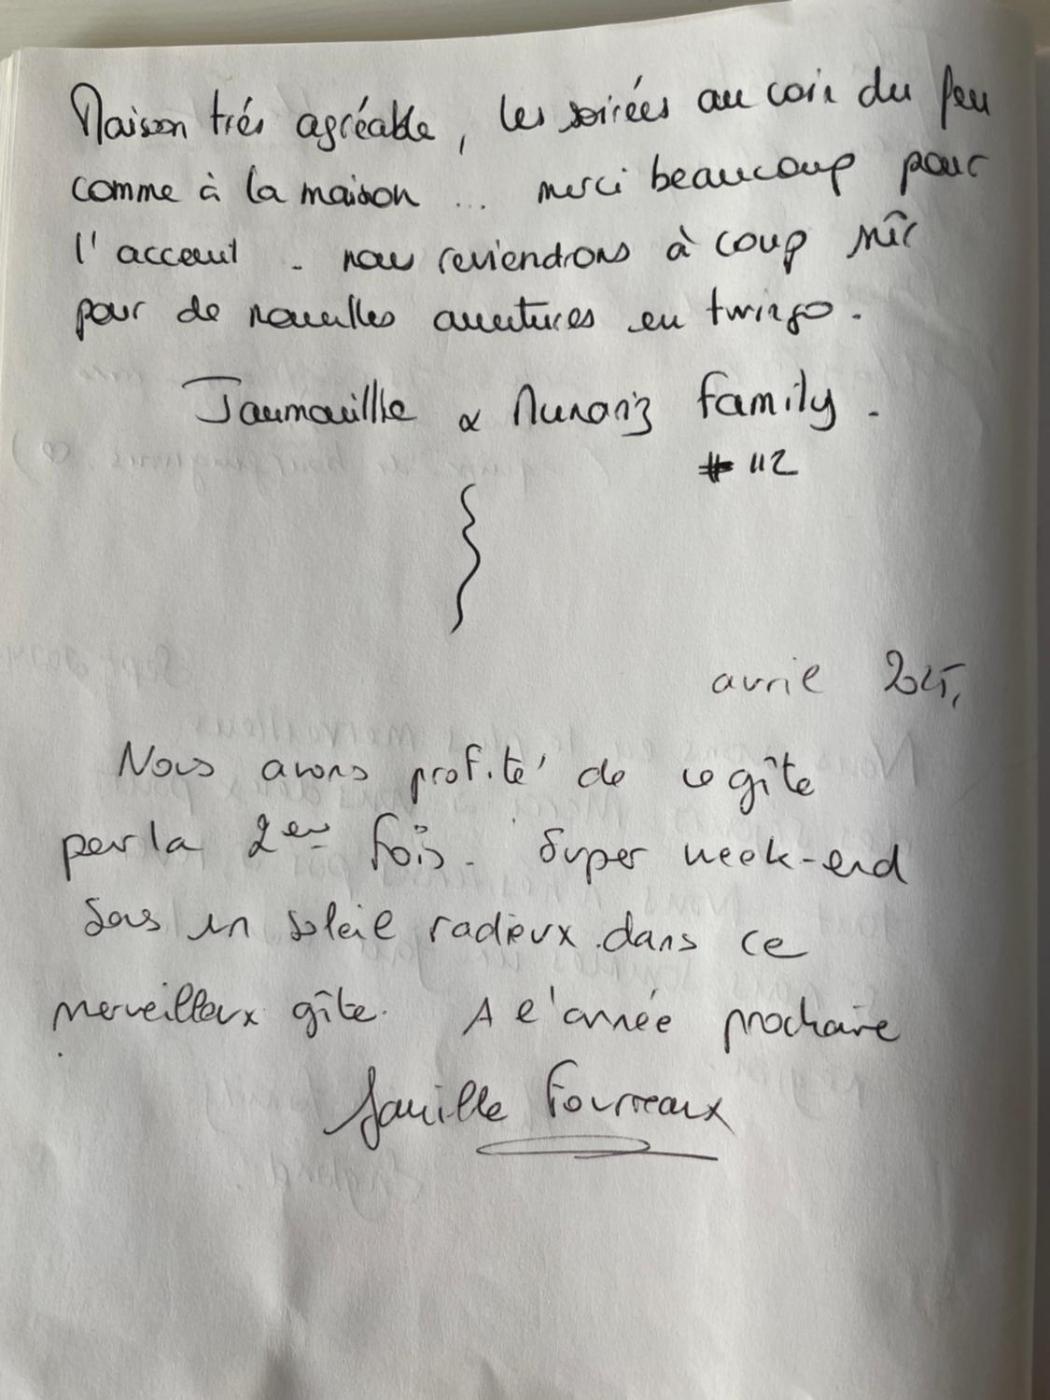 Maison très agréable, les soirées au coin du feu
comme à la maison ... merci beaucoup pour
l'acceuil - nous reviendrons à coup sûr
pour de nouvelles aventures en twingo.
Jaumouillie & family.
# 112
avril 2025,
Nous avons profité de ce gîte
pour la 2em fois. Super week-end
sous un soleil radieux dans ce
merveilleux gîte. A l'année prochaine
famille Fourreaux